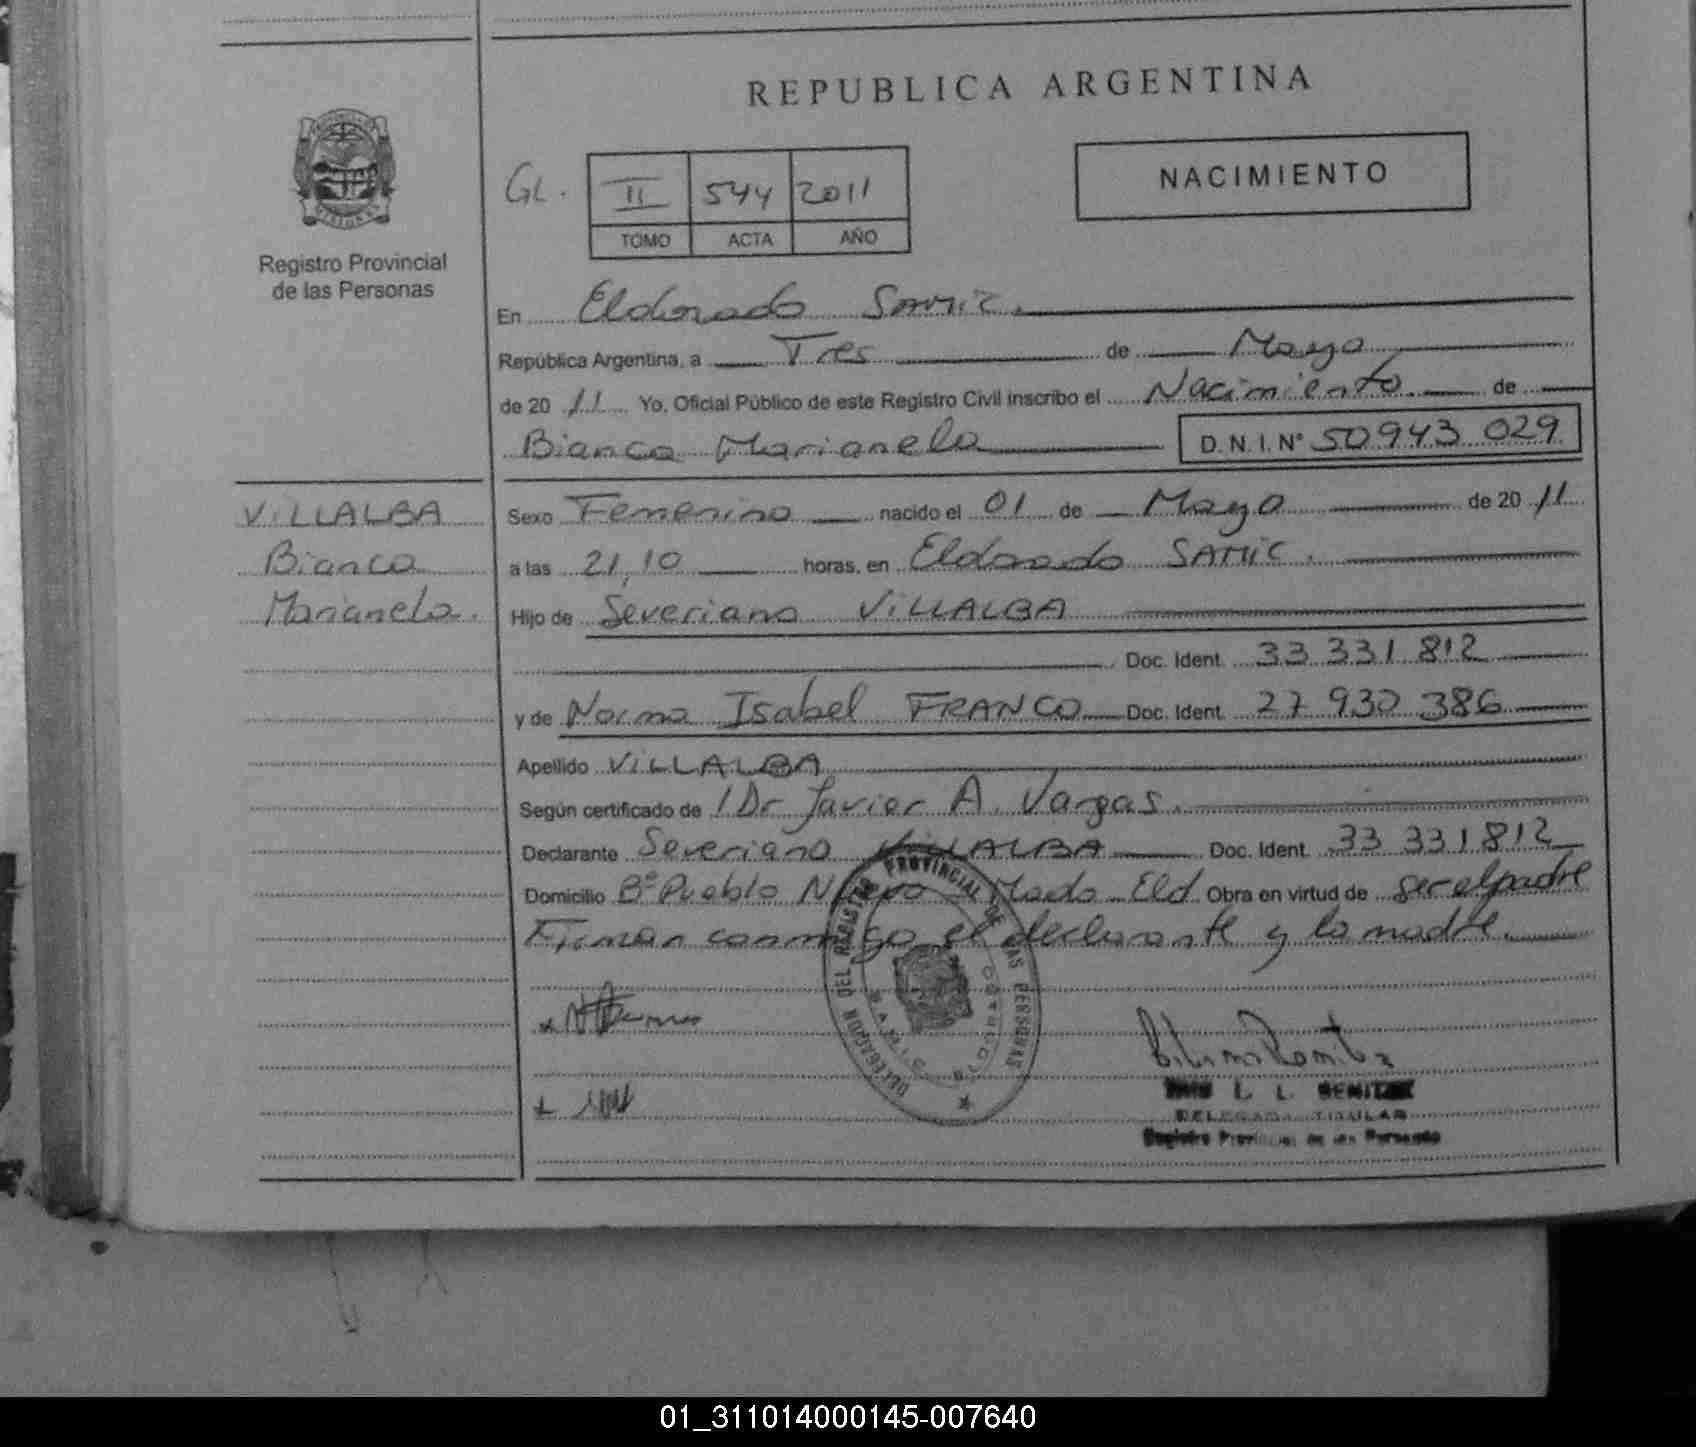 REPUBLICA ARGENTINA
GL. II 544 2011
TOMO ACTA AÑO
NACIMIENTO
Registro Provincial
de las Personas
En Eldorado SAMIC.
República Argentina, a Tres de Mayo
de 20 11 Yo, Oficial Público de este Registro Civil inscribo el Nacimiento de
Bianca Marianela D.N.I.N° 50943 029
VILLALBA
Bianca
Marianela.
Sexo Femenino nacido el 01 de Mayo de 20 11
a las 21,10 horas, en Eldorado SAMIC.
Hijo de Severiano VILLALBA
Doc. Ident. 33 331 812
y de Norma Isabel FRANCO Doc. Ident. 27 930 386
Apellido VILLALBA
Según certificado de Dr Javier A. Vargas.
Declarante Severiano VILLALBA Doc. Ident. 33 331812
Domicilio B° Pueblo Nuevo Mado Eld Obra en virtud de ser el padre
Firman conmigo el declarante y la madre.
DELEGACION DEL REGISTRO PROVINCIAL DE LAS PERSONAS
L. L. BENITEZ
DELEGADA TITULAR
Registro Provincial de las Personas
01_311014000145-007640